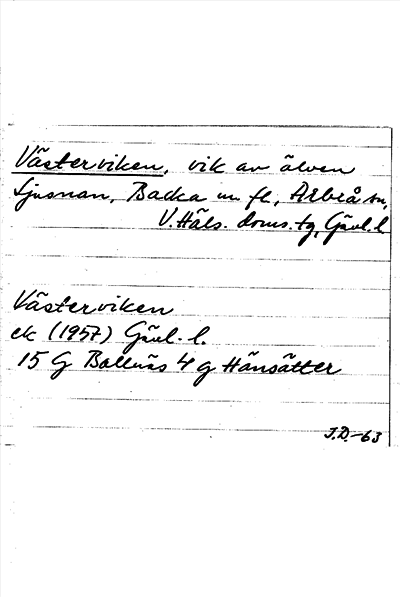 Västerviken, vik av älven
Ljusnan, Backa m fl, Arbrå sn,
V. Häls. doms. tg, Gävl. l.
Västerviken
ek (1957) Gävl. l.
15 G Bollnäs 4 g Hänsätter
J.D.-63